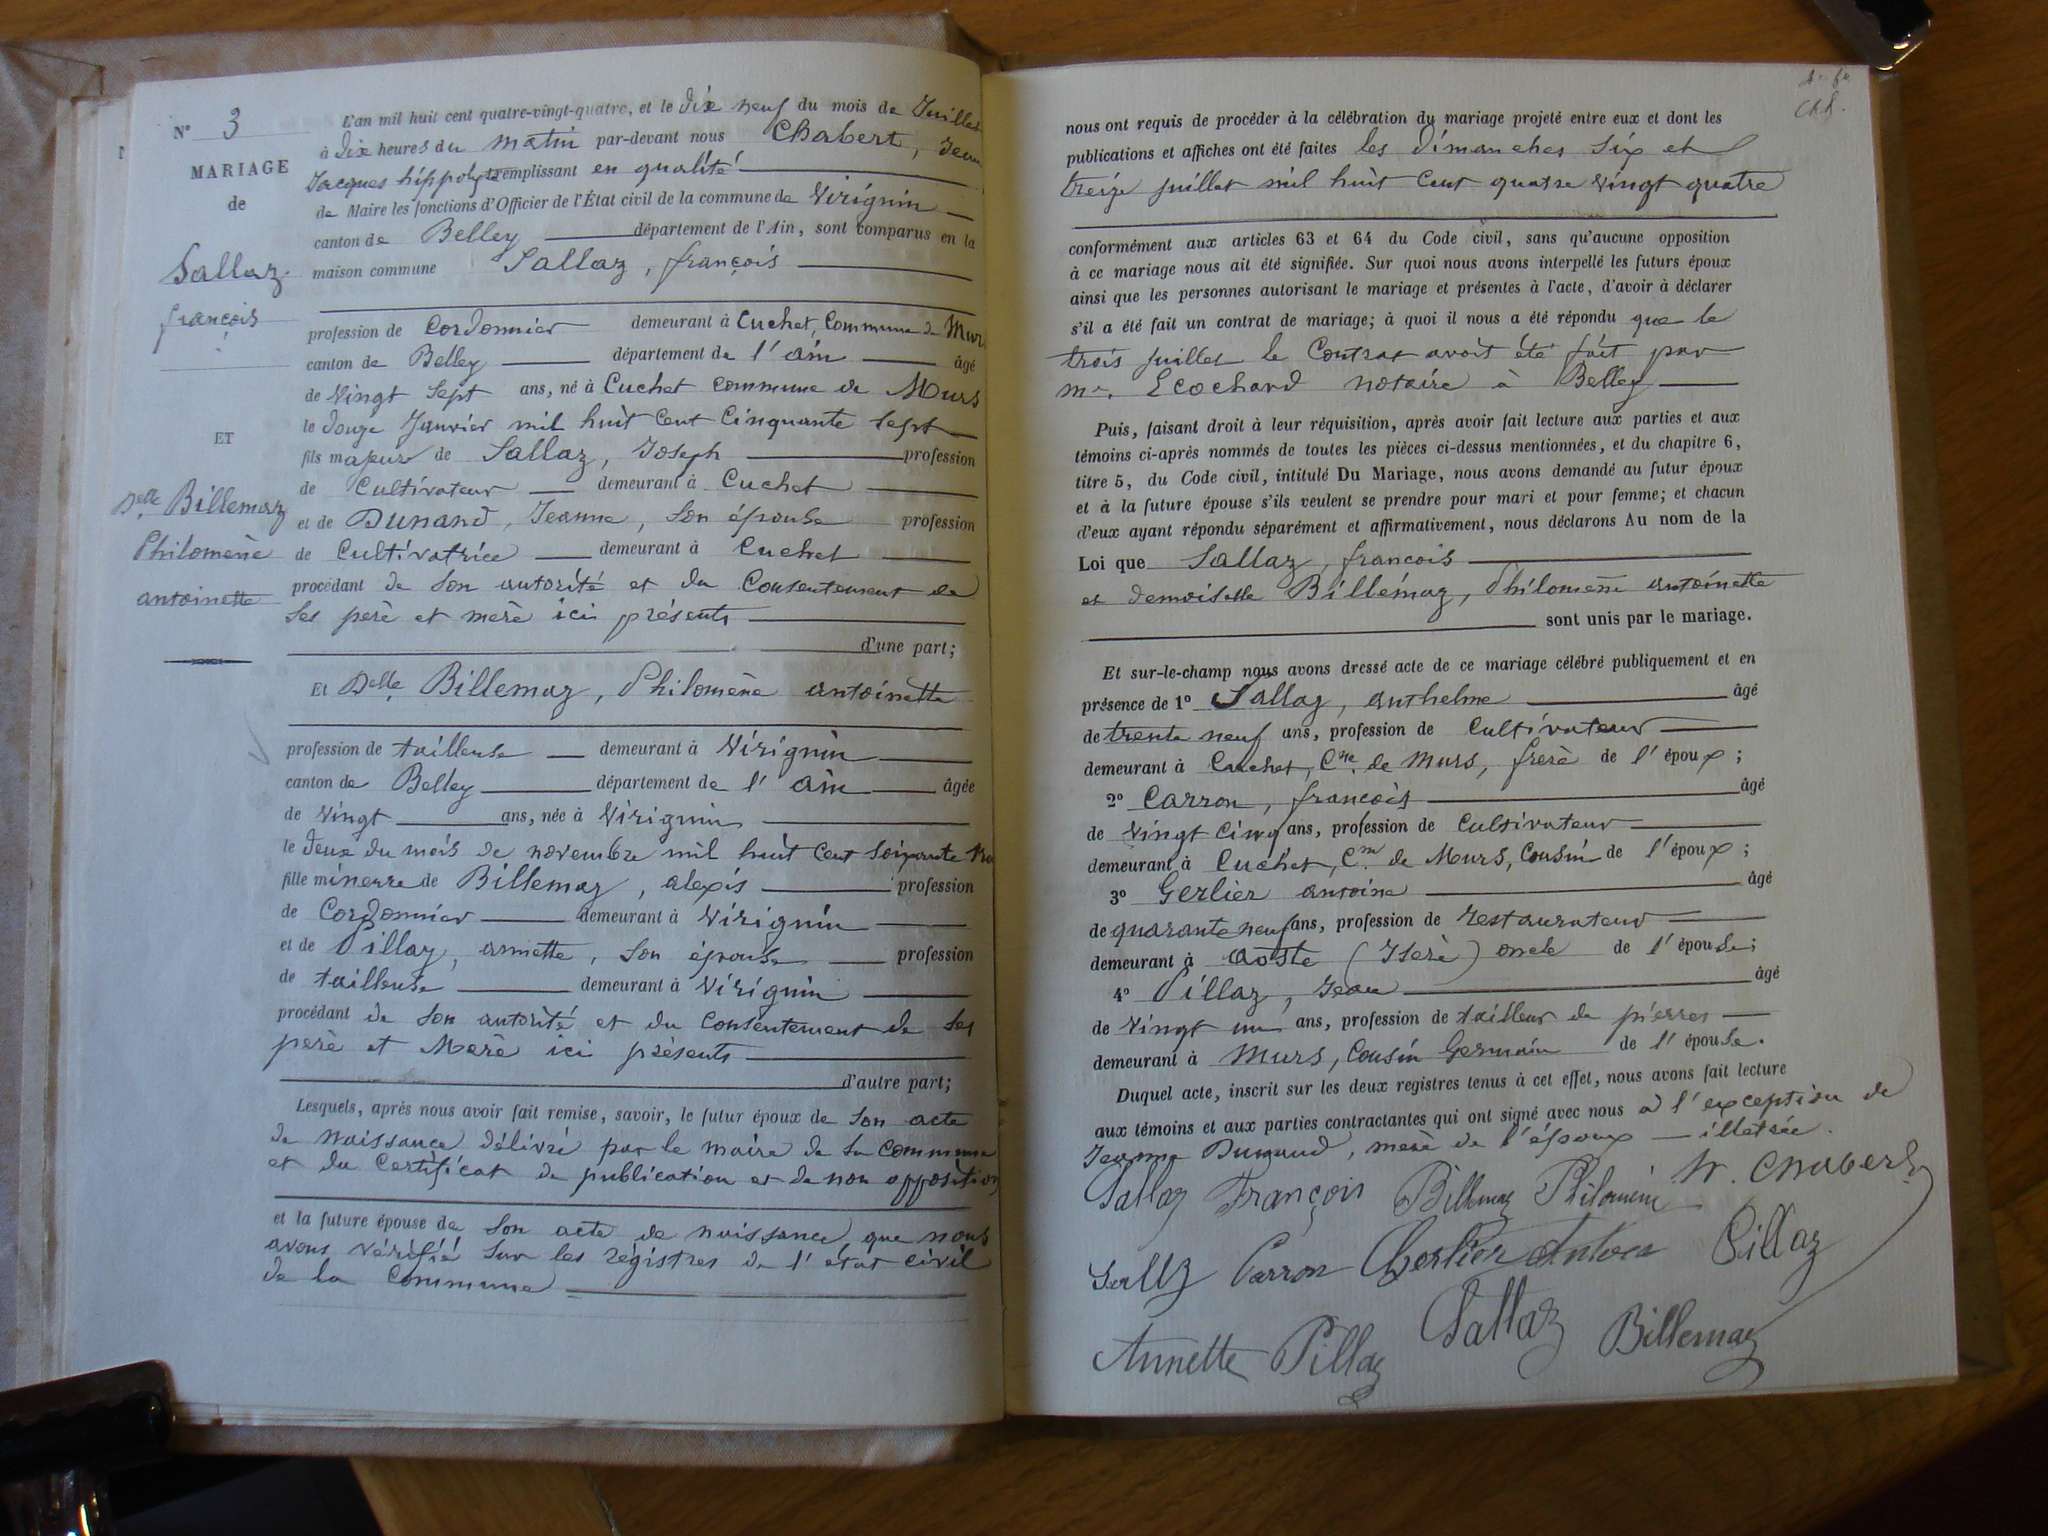 N° 3
MARIAGE
de
Sallaz
françois
ET
Delle Billemaz
Philomène
antoinette
L'an mil huit cent quatre-vingt-quatre, et le dix neuf du mois de Juillet
à dix heures du matin par-devant nous Chabert, Jean
Jacques hippolyte remplissant en qualité
de Maire les fonctions d'Officier de l'État civil de la commune de Virignin
canton de Belley département de l'Ain, sont comparus en la
maison commune Sallaz, françois
profession de Cordonnier demeurant à Cuchet, Commune de Murs
canton de Belley département de l'ain âgé
de Vingt Sept ans, né à Cuchet commune de Murs
le douze Janvier mil huit Cent Cinquante Sept
fils majeur de Sallaz, Joseph profession
de Cultivateur demeurant à Cuchet
et de Dunand, Jeanne, Son épouse profession
de Cultivatrice demeurant à Cuchet
procédant de Son autorité et du Consentement de
Ses perè et merè ici présents
d'une part;
Et Delle Billemaz, Philomène antoinette
profession de tailleuse demeurant à Virignin
canton de Belley département de l'ain âgée
de Vingt ans, née à Virignin
le deux du mois de novembre mil huit Cent Soixante
fille mineure de Billemaz, alexis profession
de Cordonnier demeurant à Virignin
et de Pillaz, annette, Son épouse profession
de tailleuse demeurant à Virignin
procédant de Son autorité et du Consentement de Ses
perè et Merè ici présents
d'autre part;
Lesquels, après nous avoir fait remise, savoir, le futur époux de Son acte
de Naissance délivré par le maire de Sa Commune
et du Certificat de publication et de non opposition
et la future épouse de Son acte de naissance que nous
avons vérifié Sur les régistres de l'état civil
de la Commune
nous ont requis de procéder à la célébration du mariage projeté entre eux et dont les
publications et affiches ont été faites les dimanches Six et
treize juillet mil huit Cent quatre Vingt quatre
conformément aux articles 63 et 64 du Code civil, sans qu'aucune opposition
à ce mariage nous ait été signifiée. Sur quoi nous avons interpellé les futurs époux
ainsi que les personnes autorisant le mariage et présentes à l'acte, d'avoir à déclarer
s'il a été fait un contrat de mariage; à quoi il nous a été répondu que le
trois juillet le Contrat avait été fait par
mr. Ecochard notaire à Belley
Puis, faisant droit à leur réquisition, après avoir fait lecture aux parties et aux
témoins ci-après nommés de toutes les pièces ci-dessus mentionnées, et du chapitre 6,
titre 5, du Code civil, intitulé Du Mariage, nous avons demandé au futur époux
et à la future épouse s'ils veulent se prendre pour mari et pour femme; et chacun
d'eux ayant répondu séparément et affirmativement, nous déclarons Au nom de la
Loi que Sallaz, francois
et demoiselle Billémaz, Philomène antoinette
sont unis par le mariage.
Et sur-le-champ nous avons dressé acte de ce mariage célébré publiquement et en
présence de 1° Sallaz, anthelme âgé
de trente neuf ans, profession de Cultivateur
demeurant à Cuchet, Cne. de Murs, frerè de l'époux;
2° Carron, françois âgé
de Vingt Cinq ans, profession de Cultivateur
demeurant à Cuchet, Cne de Murs, Cousin de l'époux;
3° Gerlier antoine âgé
de quarante neuf ans, profession de restaurateur
demeurant à aoste (Iserè) oncle de l'épouse;
4° Pillaz, Jean âgé
de Vingt un ans, profession de tailleur de pierres
demeurant à Murs, Cousin Germain de l'épouse.
Duquel acte, inscrit sur les deux registres tenus à cet effet, nous avons fait lecture
aux témoins et aux parties contractantes qui ont signé avec nous à l'exception de
Jeanne Dunand, merè de l'époux illétrée.
Sallaz François Billemaz Philomène H. Chabert
Carron Gerlier Antoine Pillaz
Sallaz Billemaz
Annette Pillaz